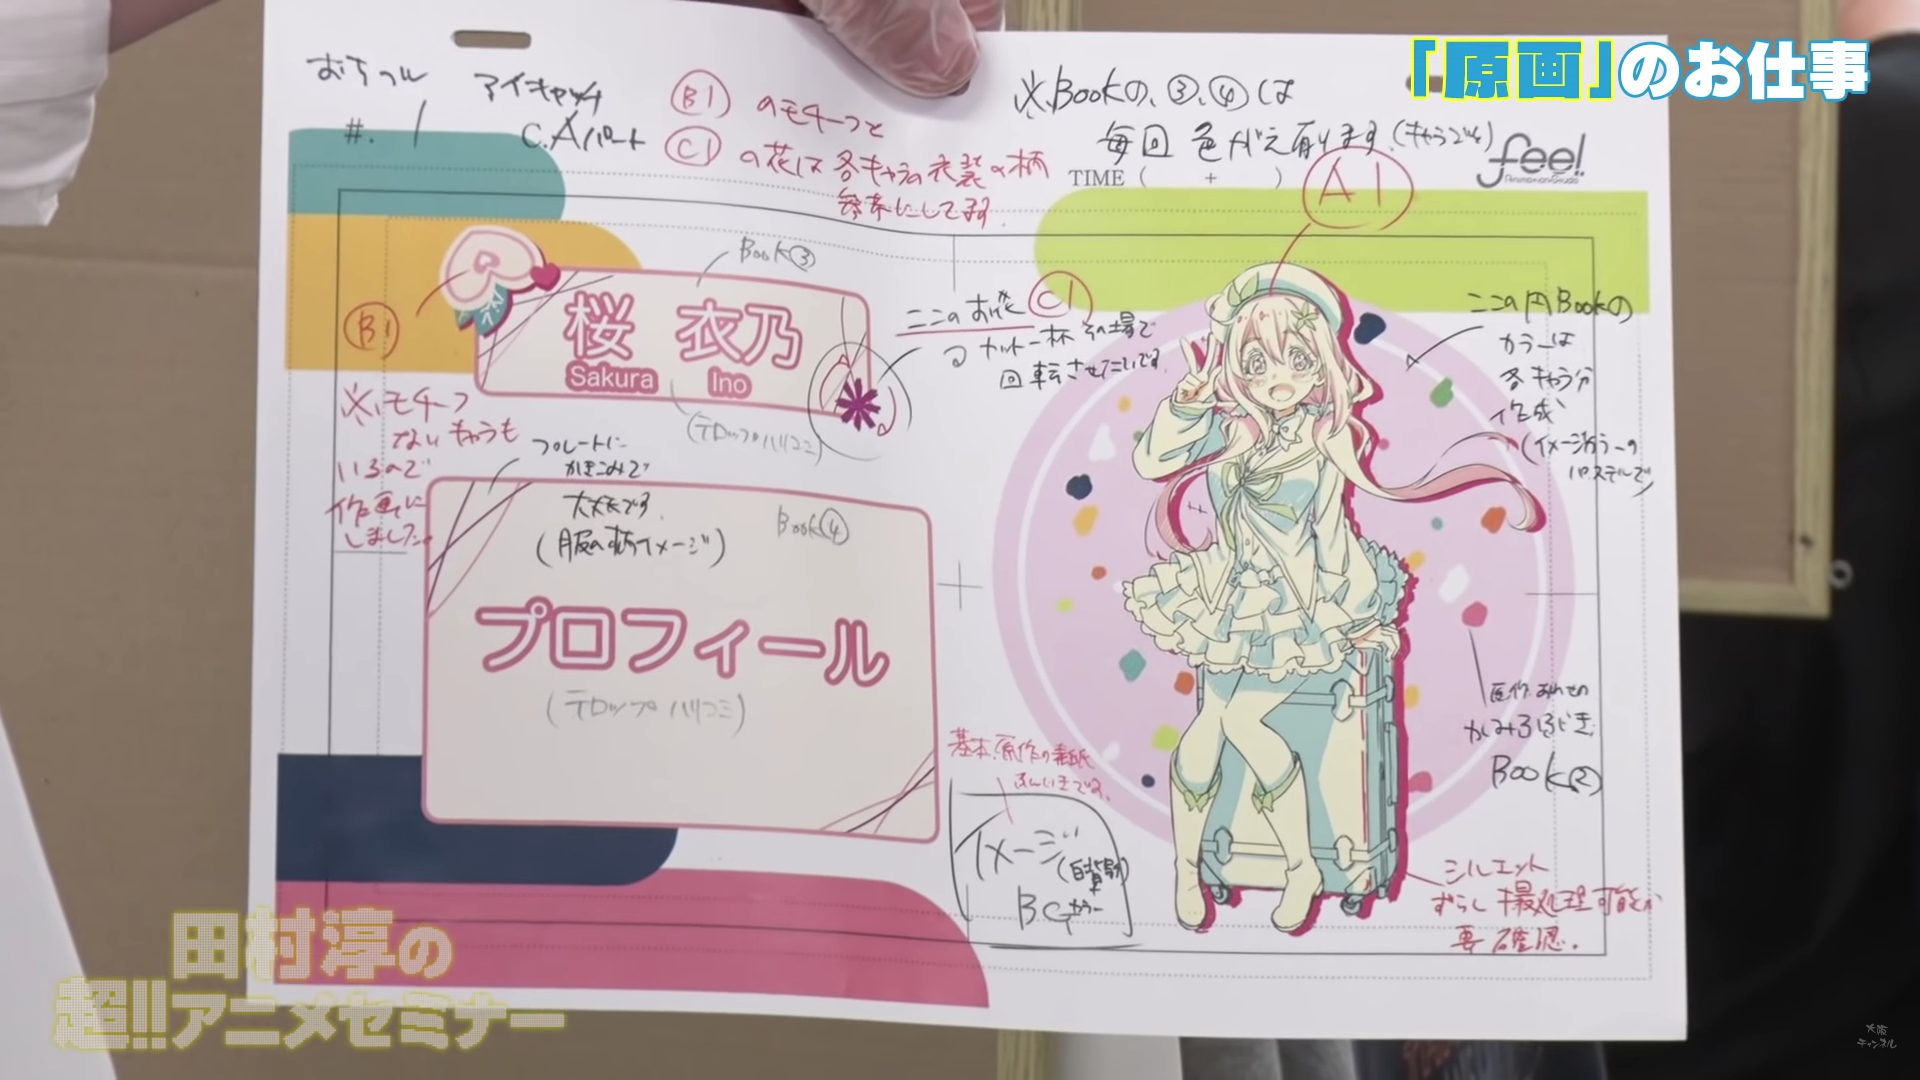 「原画」のお仕事
おちフル
アイキャッチ
#. 1
C. Aパート
B1 のモチーフと
C1 の花は各キャラの衣装の柄
参考にしてます
※Bookの、③、④は
毎回 色がえ有ります。(キャラごと)
TIME ( + )
feel.
A1
B1
Book③
桜 衣乃
Sakura Ino
(テロップハリコミ)
C1
ここのお花
カット一杯 その場で
回転させたいです
ここの円Bookの
カラーは
各キャラ分
作成
(イメージカラーの
パステルで)
※モチーフ
ないキャラも
いるので
作画に
しました。
プレートに
かきこみで
大丈夫です
(服の柄イメージ)
Book④
プロフィール
(テロップハリコミ)
基本、原作の表紙
ふんいきです。
イメージ
BGカラー
原作あわせの
かみふぶき
Book②
シルエット
ずらし 撮処理可能か
要確認。
田村淳の
超!!アニメセミナー
大阪
チャンネル